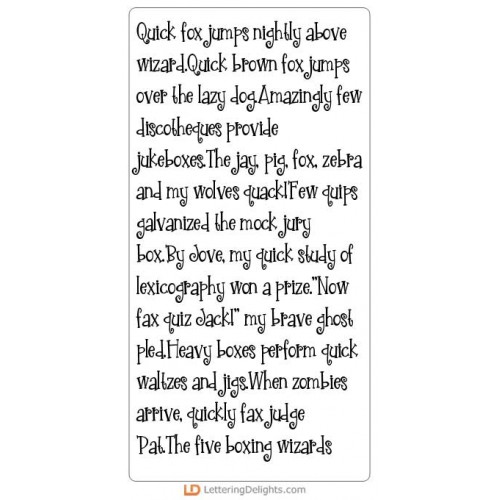 Quick fox jumps nightly above
wizard.Quick brown fox jumps
over the lazy dog.Amazingly few
discotheques provide
jukeboxes.The jay, pig, fox, zebra
and my wolves quack!'Few quips
galvanized the mock jury
box.By Jove, my quick study of
lexicography won a prize."Now
fax quiz Jack!" my brave ghost
pled.Heavy boxes perform quick
waltzes and jigs.When zombies
arrive, quickly fax judge
'Pat.The five boxing wizards
LD LetteringDelights.com